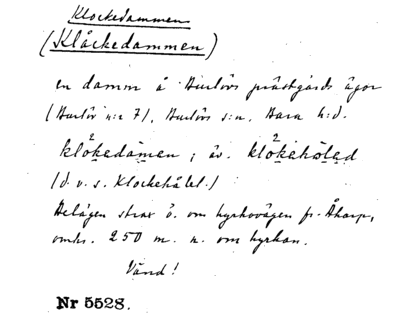 Klockedammen
(Klåckedammen)
en damm å Burlövs prästgårds ägor
(Burlöv n:r 7), Burlövs s:n, Bara h:d.
klåkedamen; äv. klåkehåled
(d. v. s. Klockehålet.)
Belägen strax ö. om kyrkovägen fr. Åkarp,
omkr. 250 m. n. om kyrkan.
Vänd!
Nr 5528.